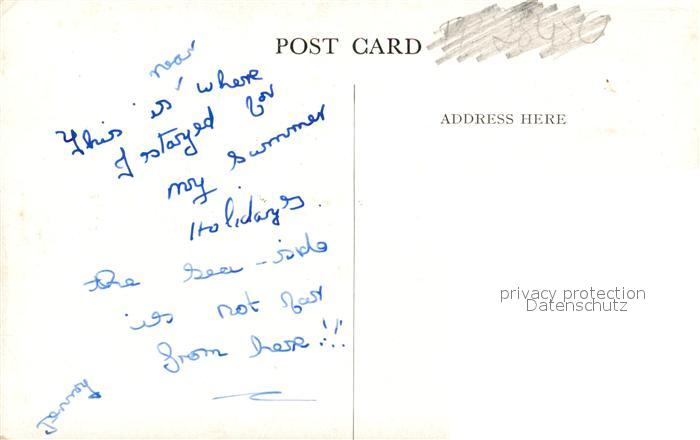 POST CARD
near
This is where
I stayed for
my summer
Holidays.
the sea-side
is not far
from here!!!
Jenny
ADDRESS HERE
privacy protection
Datenschutz